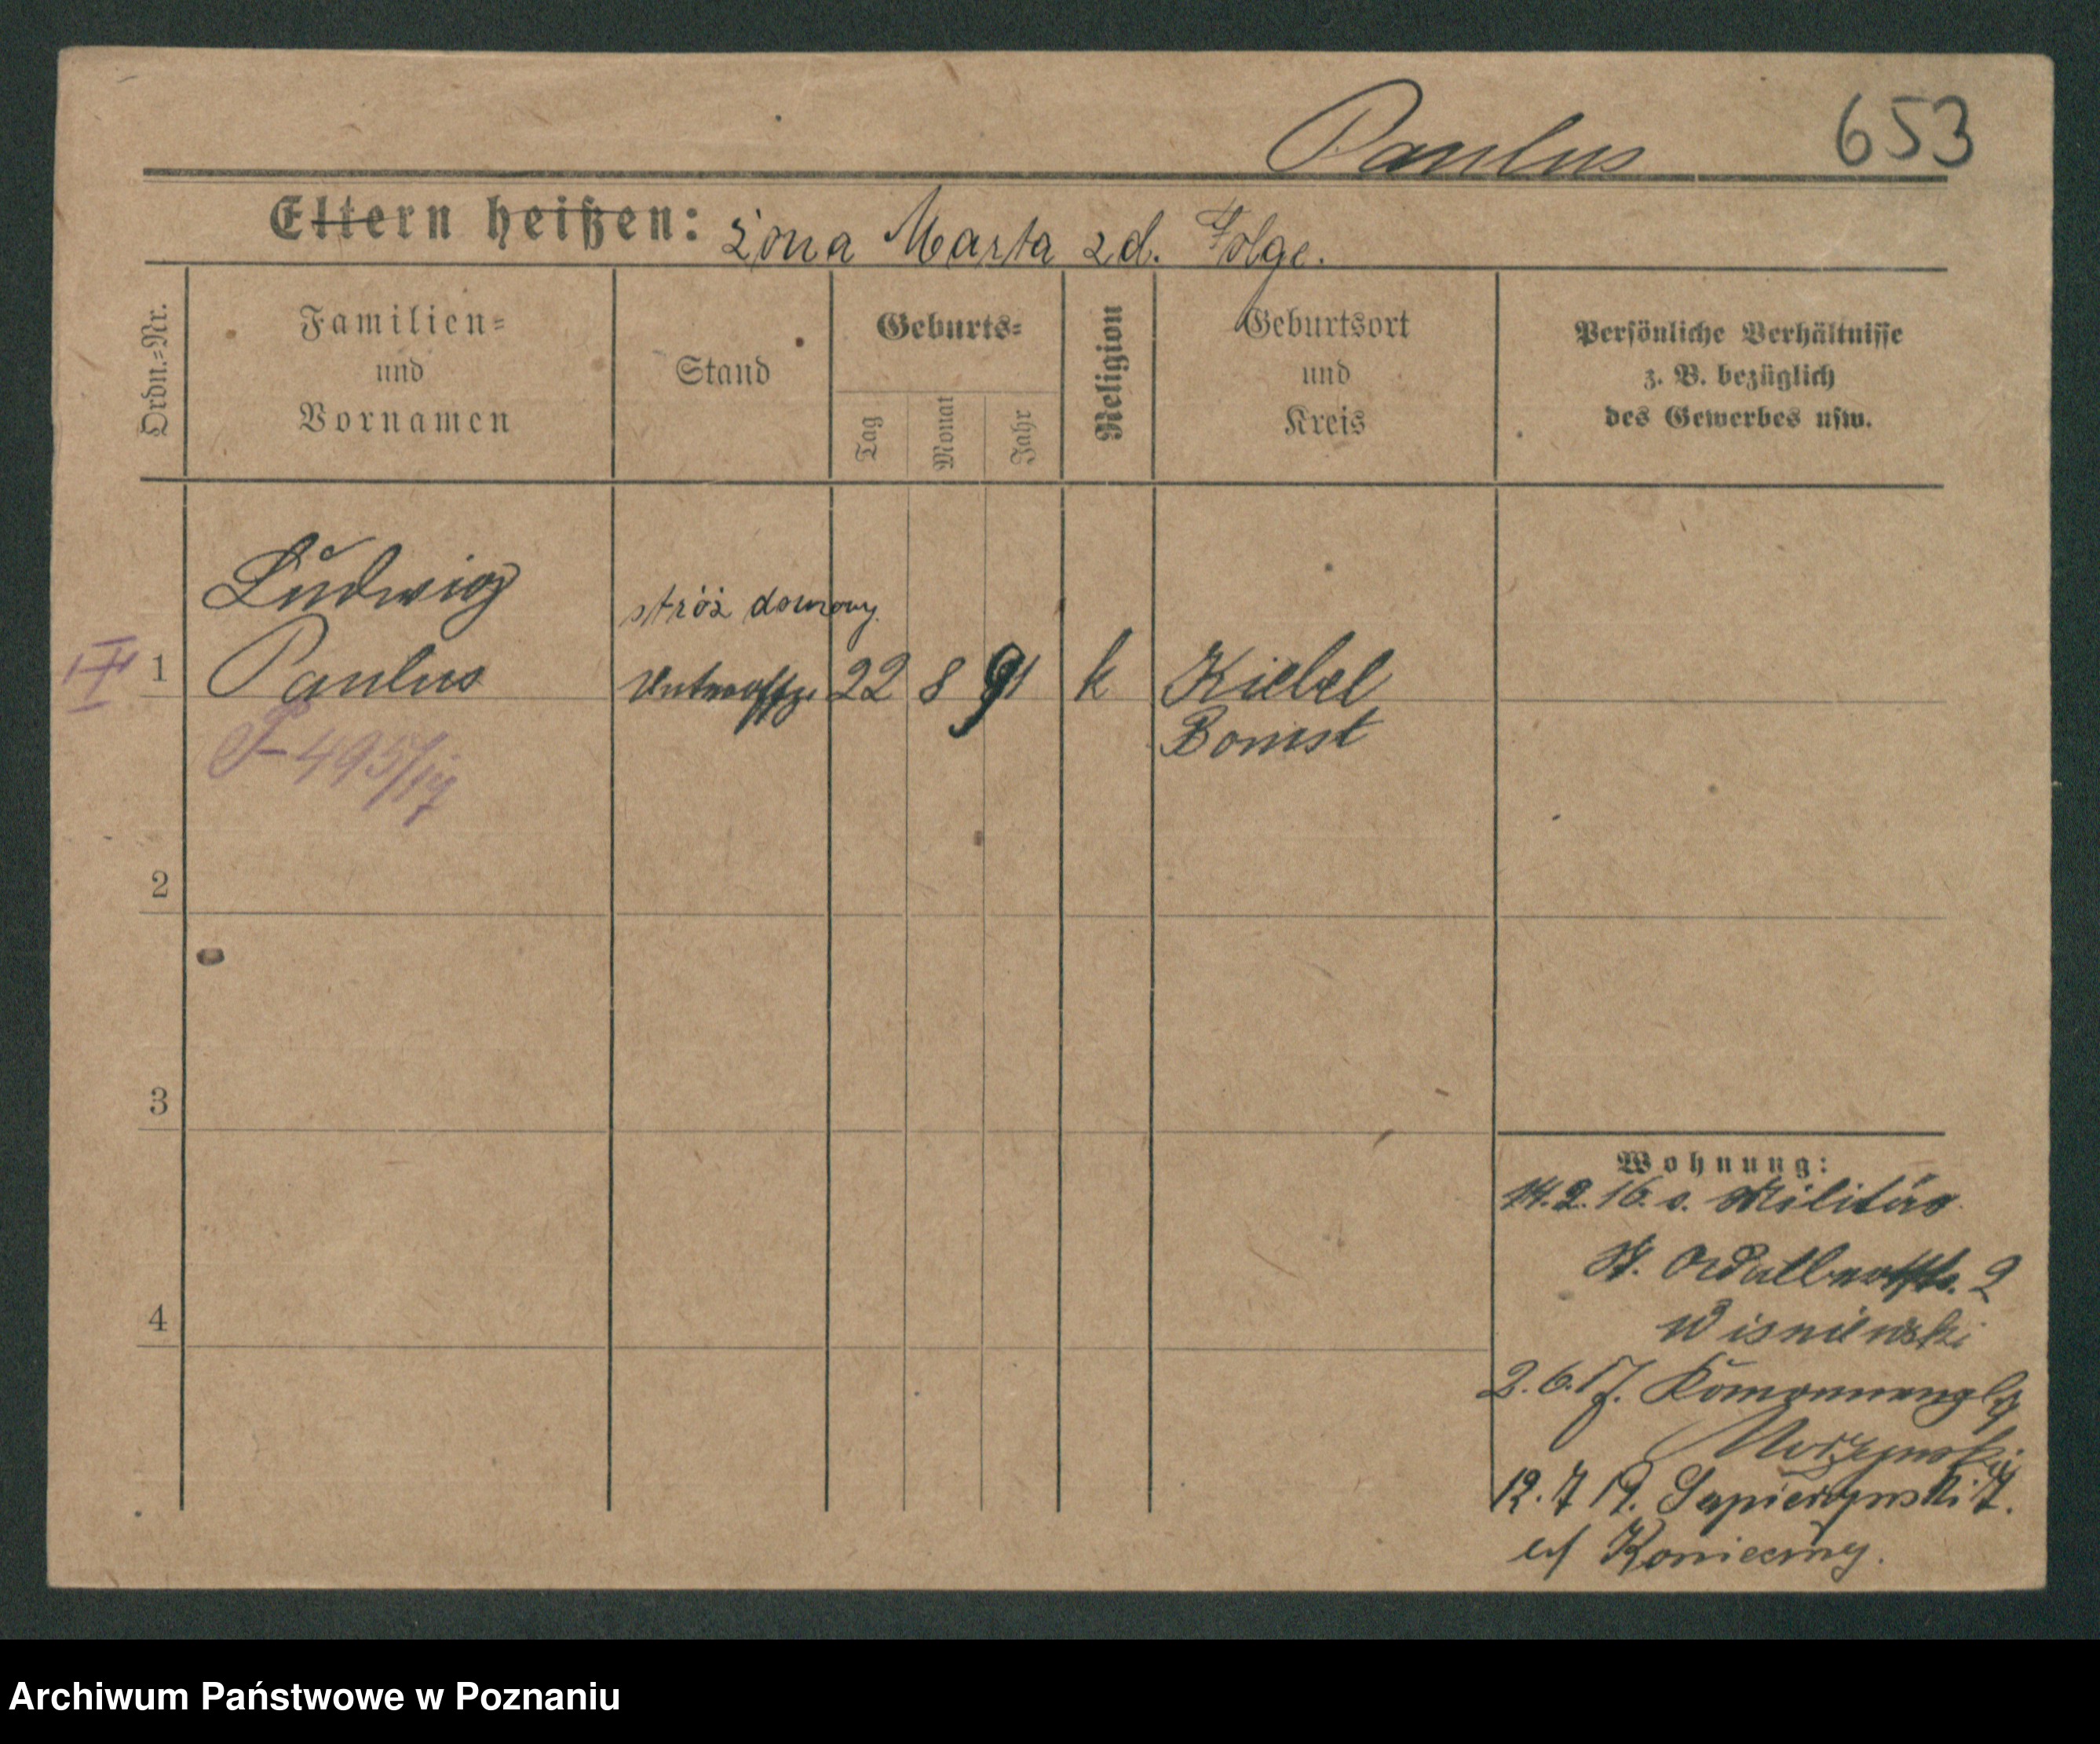 Paulus 653
Eltern heißen: żona Marta zd. Folge.
Ordn.=Nr.
Familien=
und
Vornamen
Stand
Geburts=
Tag
Monat
Jahr
Religion
Geburtsort
und
Kreis
Persönliche Verhältnisse
z. B. bezüglich
des Gewerbes usw.
Ludwig
stróż domowy
1 Paulus Unteroffz. 22 8 91 k Kiebel
Bomst
495/17
2
3
4
Wohnung:
14.2.16. v. Militär
St. 2
Wisniewski
2.6.17.
12.7 19. 7.
Konieczny.
Archiwum Państwowe w Poznaniu